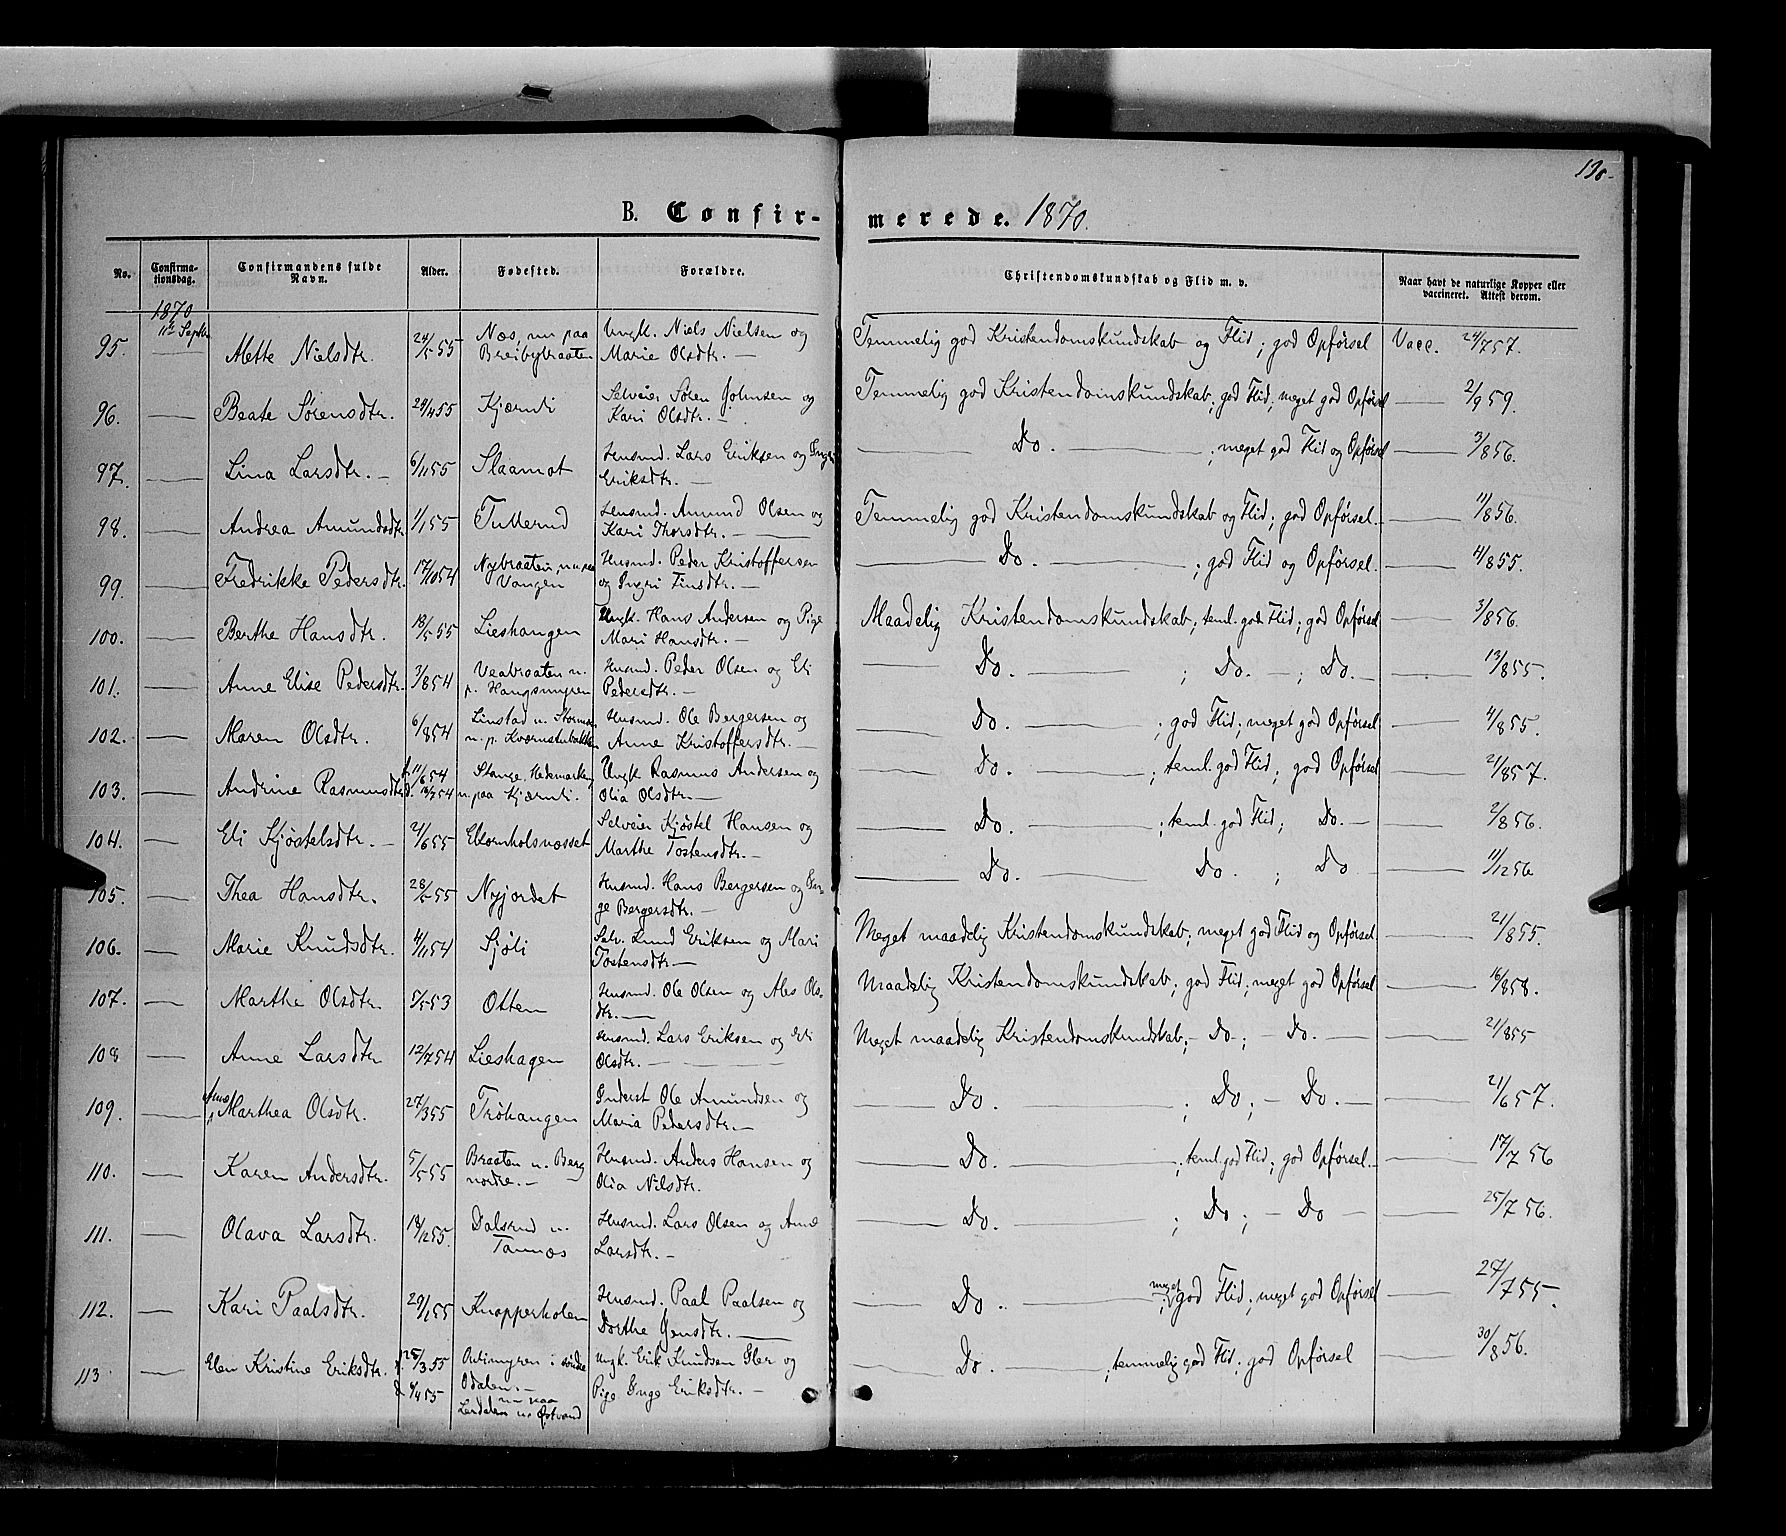 138.
B. Confir-merede. 1870.
No. Confirma-tionsdag. Confirmandens fulde Navn. Alder. Fødested. Forældre. Christendomskundskab og Flid m. v. Naar havt de naturlige Kopper eller vaccineret. Attest derom.
1870
11te Septbr.
95. — Mette Nielsdtr. 24/5 55 Næs, nu paa Breibybraaten Ungk. Niels Nielsen og Marie Olsdtr. — Temmelig god Kristendomskundskab og Flid; god Opførsel Vacc. 24/7 57.
96. — Beate Sørensdtr. 29/4 55 Kjærnli Selveier Søren Johnsen og Kari Olsdtr. — Temmelig god Kristendomskundskab; god Flid; meget god Opførsel — 2/9 59.
97. — Lina Larsdtr. — 6/11 55 Slaamot Husmd. Lars Eriksen og Eriksdtr. — — Do. — ; meget god Flid og Opførsel — 3/8 56.
98. — Andrea Amundsdtr. 1/1 55 Tullerud Husmd. Amund Olsen og Kari Thorsdtr. — Temmelig god Kristendomskundskab og Flid; god Opførsel. — 11/8 56.
99. — Fredrikke Pedersdtr. 17/10 54 Nybraaten, nu paa Vangen Husmd. Peder Kristoffersen og Ingri Finsdtr. — — Do. — ; god Flid og Opførsel. — 4/8 55.
100. — Berthe Hansdtr. 18/5 55 Lieshangen Ungk. Hans Andersen og Pige Mari Hansdtr. — Maadelig Kristendomskundskab; teml. god Flid; god Opførsel — 3/8 56.
101. — Anne Elise Pedersdtr. 3/8 54 Veabraaten n. p. Haugsmyren Husmd. Peder Olsen og Eli Pedersdtr. — — Do. — ; Do. — ; Do. — — 13/8 55.
102. — Maren Olsdtr. 6/8 54 Linstad n. p. Kværnstubakken Husmd. Ole Bergersen og Anne Kristoffersdtr. — — Do. — ; god Flid; meget god Opførsel — 4/8 55.
103. — Andrine Rasmusdtr. f. 11/6 54 d. 13/7 54 Stange, Hedemarken n. paa Kjærnli. Ungk. Rasmus Andersen og Olia Olsdtr. — — Do. — ; teml. god Flid; god Opførsel — 21/8 57.
104. — Eli Kjøstelsdtr. — 21/6 55 Ebbornholsnæsset Selveier Kjøstel Hansen og Marthe Tostensdtr. — — Do. — ; teml. god Flid; Do. — — 2/8 56.
105. — Thea Hansdtr. 28/5 55 Nyjordet Husmd. Hans Bergersen og Inge Bergersdtr. — — Do. — Do. ; Do — 11/12 56
106. — Marie Knudsdtr. 4/11 54 Sjøli Selv. Knud Eriksen og Mari Tostensdtr — Meget maadelig Kristendomskundskab; meget god Flid og Opførsel — 21/8 55.
107. — Marthe Olsdtr. 5/5 53 Otten Husmd. Ole Olsen og Ales Olsdtr. — Maadelig Kristendomskundskab; god Flid; meget god Opførsel — 16/8 58.
108 — Anne Larsdtr 12/7 54 Lieshagen Husmd. Lars Eriksen og Eli Olsdtr. — Meget maadelig Kristendomskundskab; — Do. ; — Do. — — 21/8 55
109. — Anne Marthea Olsdtr. 27/3 55 Trøhaugen Inderst Ole Amundsen og Maria Pedersdtr. — — Do. — ; Do. ; — Do. — — 21/6 57.
110. — Karen Andersdtr. 5/5 55 Braaten u. Berg nordre. — Husmd. Anders Hansen og Olia Nilsdtr. — Do. — ; teml. god Flid; god Opførsel. — — 17/7 56
111. — Olava Larsdtr. 19/12 55. Dalsrud u. Tannæs Husmd. Lars Olsen og Anne Larsdtr. — — Do. — ; Do ; — Do — — 25/7 56.
112. — Kari Paalsdtr. 29/1 55 Knapperholen Husmd. Paal Paalsen og Dorthe Jensdtr. — — Do. — ; meget god Flid; meget god Opførsel — 24/7 55.
113 — Elen Kristine Eriksdtr. f 25/3 55 d 9/4 55 i søndre Odalen. — nu paa Lerdalen u. Østvand Ungk. Erik Knudsen og Pige Inge Eriksdtr. — — Do. — ; temmelig god Flid; god Opførsel — 30/8 56.